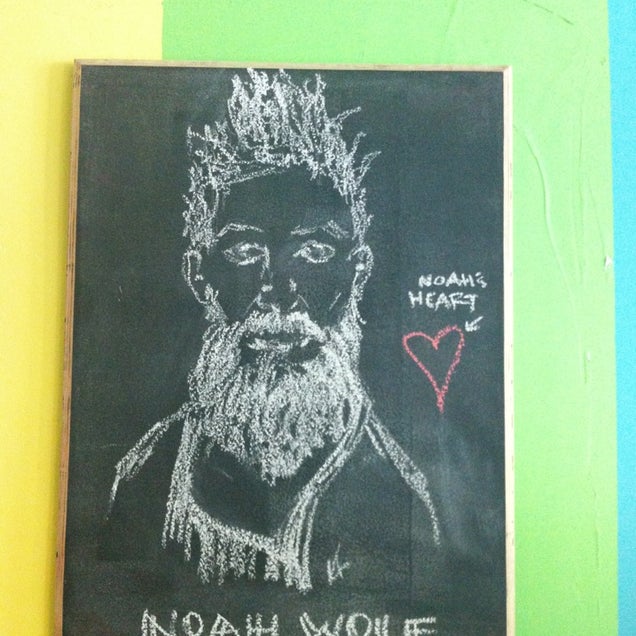 NOAH'S
HEART
NOAH WOLF